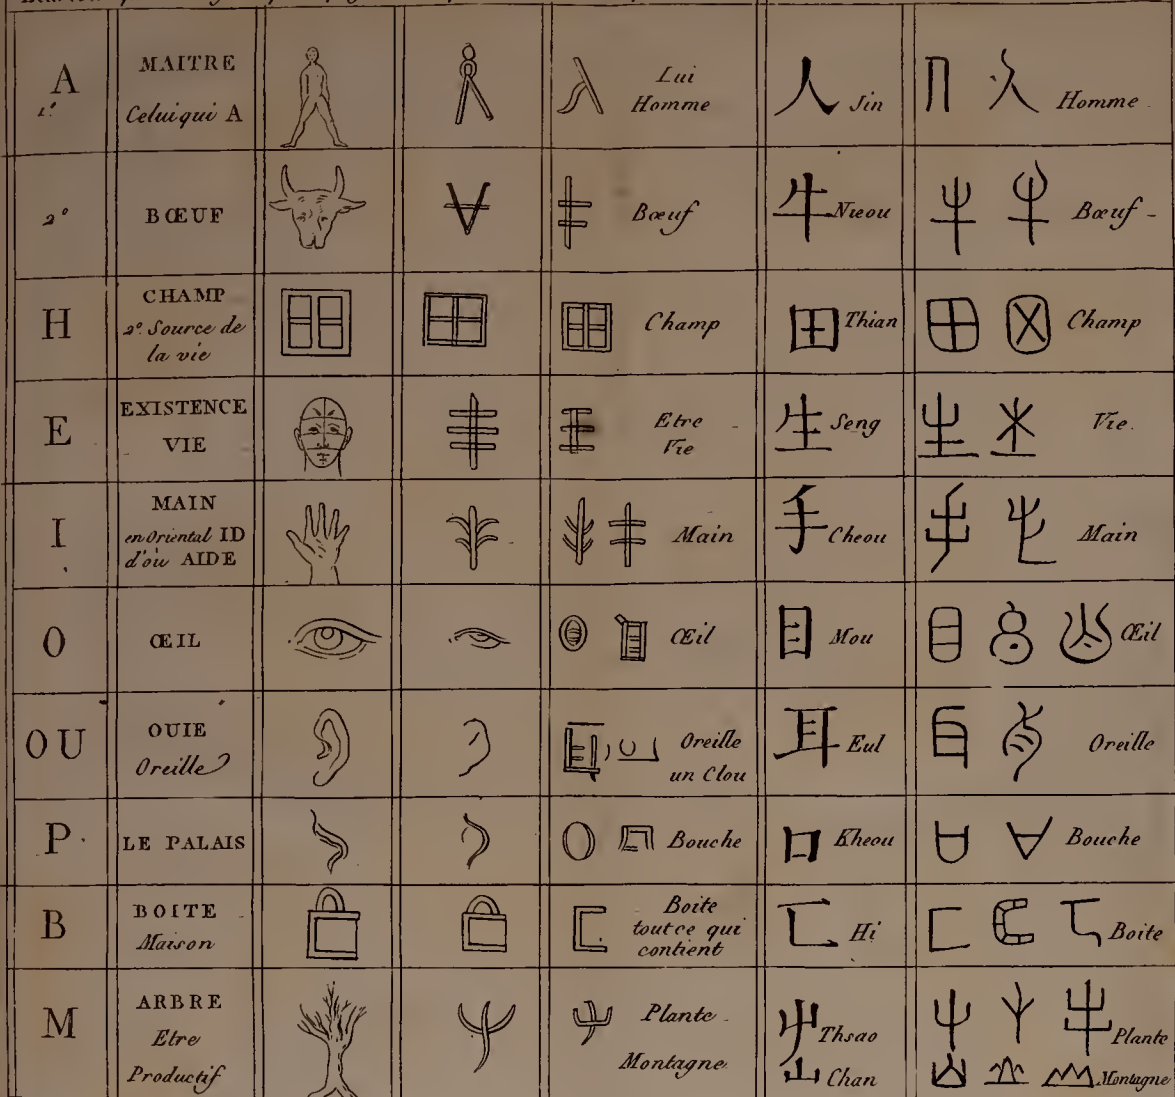 A
1.º
MAITRE
Celui qui A
Lui
Homme
人 Jin
Homme
2º
BŒUF
Bœuf
牛 Nieou
Bœuf
H
CHAMP
2º Source de
la vie
Champ
田 Thian
Champ
E
EXISTENCE
VIE
Etre
Vie
生 Seng
Vie.
I
MAIN
en Oriental ID
d'où AIDE
Main
手 Cheou
Main
O
ŒIL
Œil
目 Mou
Œil
OU
OUIE
Oreille
Oreille
un Clou
耳 Eul
Oreille
P
LE PALAIS
Bouche
口 Kheou
Bouche
B
BOITE
Maison
Boite
tout ce qui
contient
匚 Hi
Boite
M
ARBRE
Etre
Productif
Plante
Montagne
屮 Thsao
山 Chan
Plante
Montagne